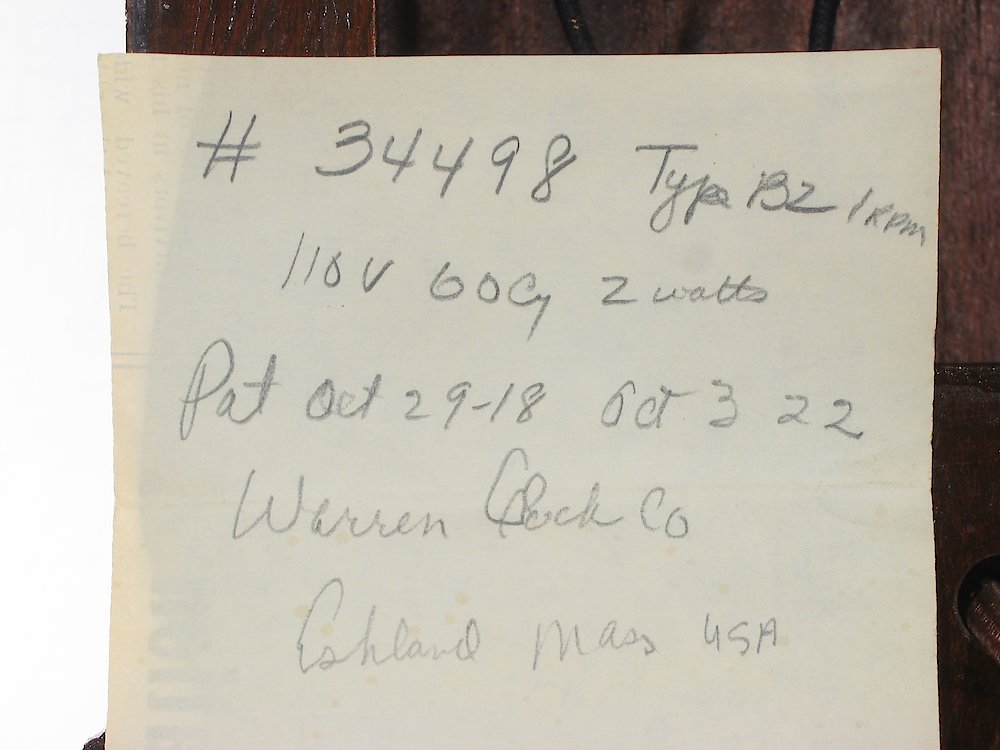 # 34498 Type B2 1 RPM
110 V 60 Cy 2 watts
Pat Oct 29-18 Oct 3 22
Warren Clock Co
Eshland Mass USA